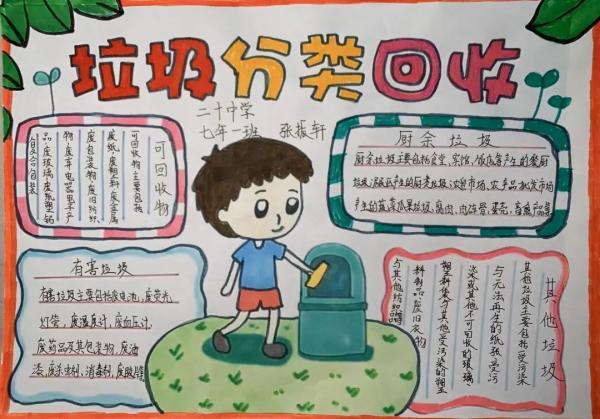 垃圾分类回收
二十中学
七年一班 张振轩
可回收物
可回收物主要包括
废纸,废塑料,废金属
废包装物,废旧纺织
物,废弃电器电子产
品,废玻璃,废纸塑铝
复合包装
厨余垃圾
厨余垃圾主要包括食堂、宾馆、饭店等产生的餐厨
垃圾,农贸市场、农产品批发市场
产生的蔬菜瓜果垃圾、腐肉、肉碎骨、蛋壳、畜禽产品等
有害垃圾
有害垃圾主要包括废电池,废荧光
灯管,废温度计,废血压计,
废药品及其包装物,废油
漆,废杀虫剂,消毒剂,废胶片
其他垃圾
其他垃圾主要包括受污染
与无法再生的纸张,受污
染或其他不可回收的玻璃
塑料袋与其他受污染的塑
料制品,废旧衣物
与其他纺织品等